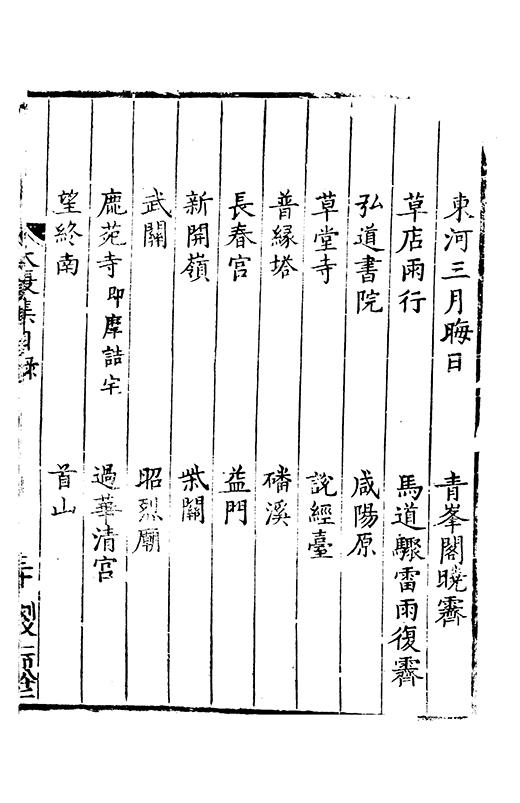 東河三月晦日　青峯閣曉霽
草店雨行　馬道驟雷雨復霽
弘道書院　咸陽原
草堂寺　說經臺
普緣塔　磻溪
長春宫　益門
新開嶺　柴關
武關　昭烈廟
鹿苑寺即摩詰宅　過華清宫
望終南　首山
集目錄